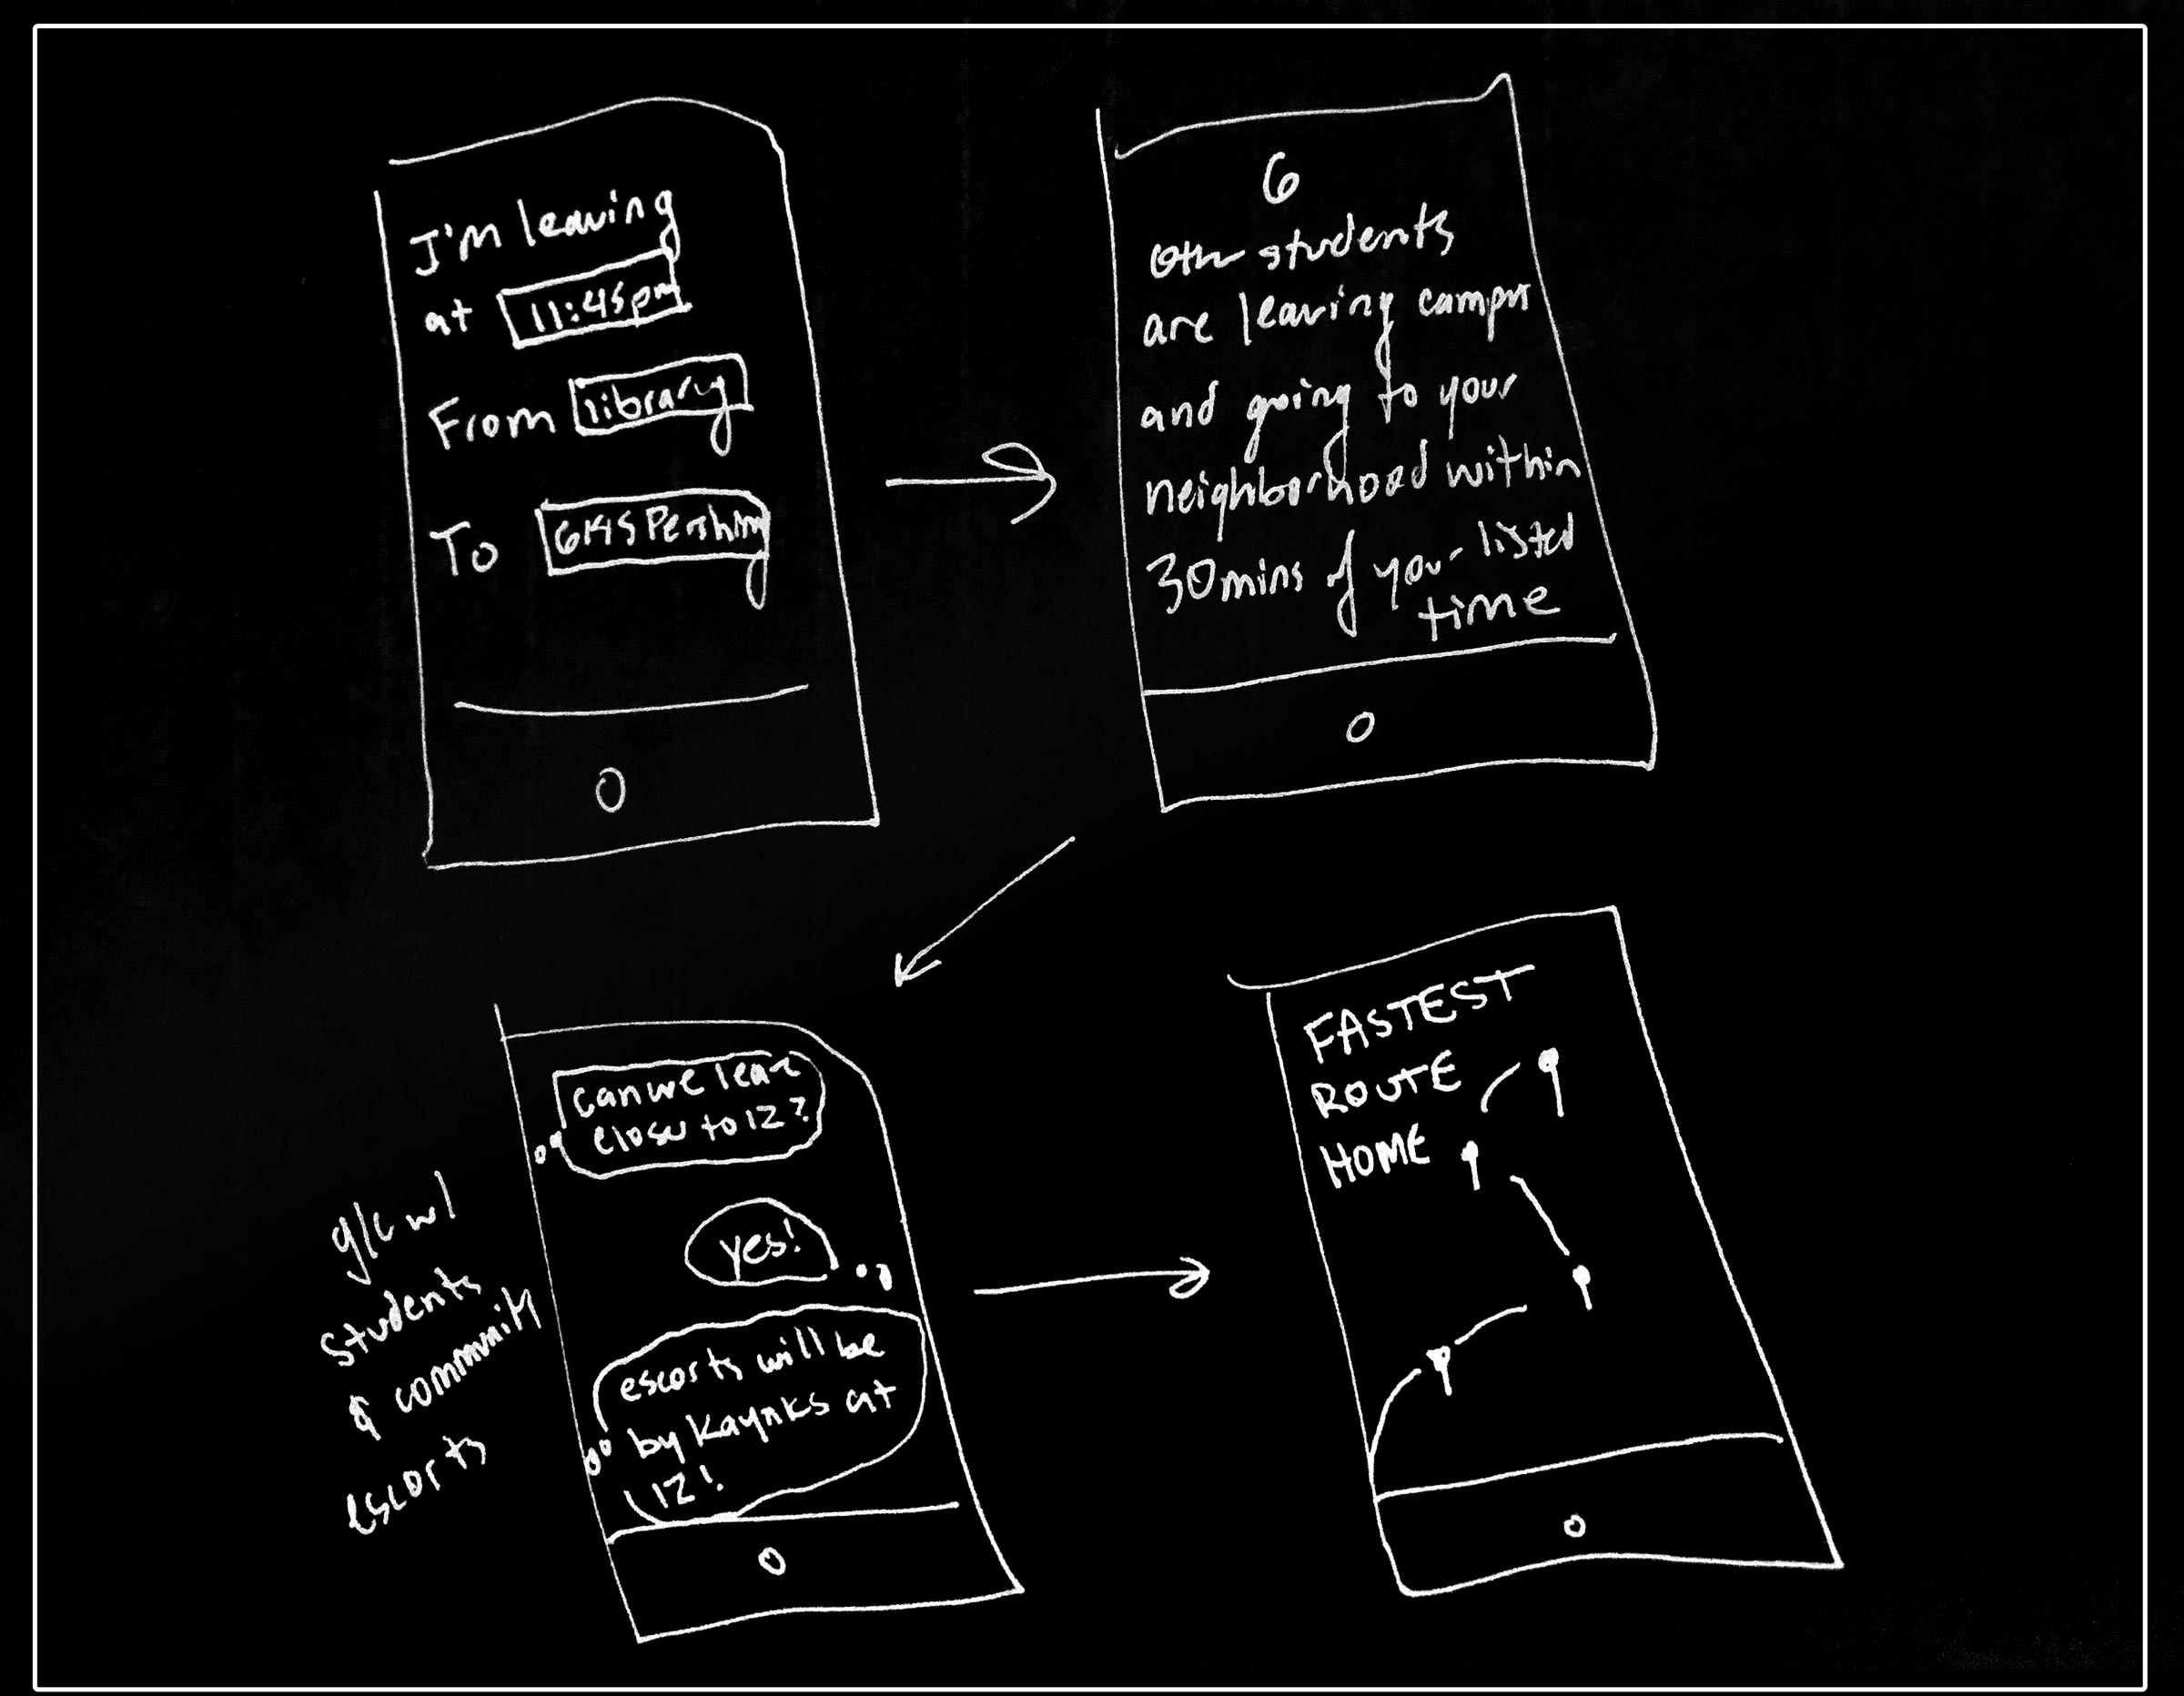 I'm leaving
at 11:45pm
From library
To Pershing
6
other students
are leaving campus
and going to your
neighborhood within
30mins of your listed
time
can we leave
closer to 12?
yes!
escorts will be
by at
12!
g/c w/
students
& community
escorts
FASTEST
ROUTE
HOME